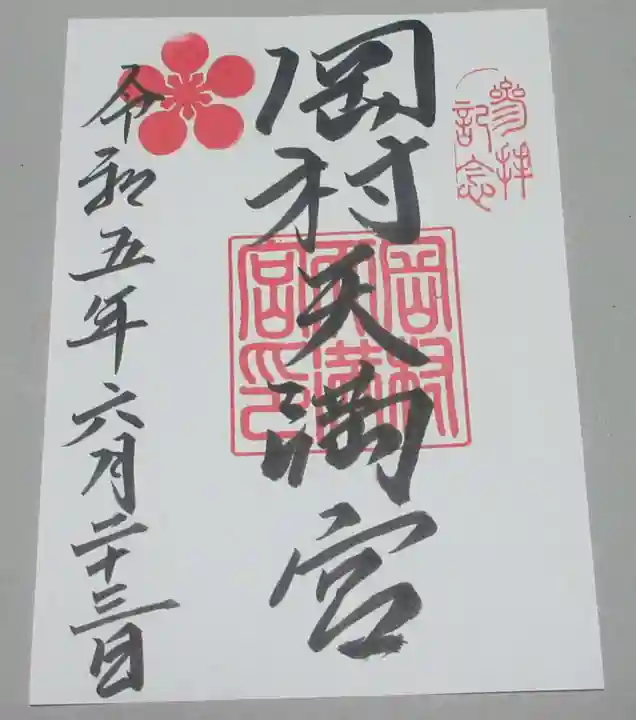 参拝
記念
岡村天満宮
岡村
天満
宮印
令和五年六月二十三日